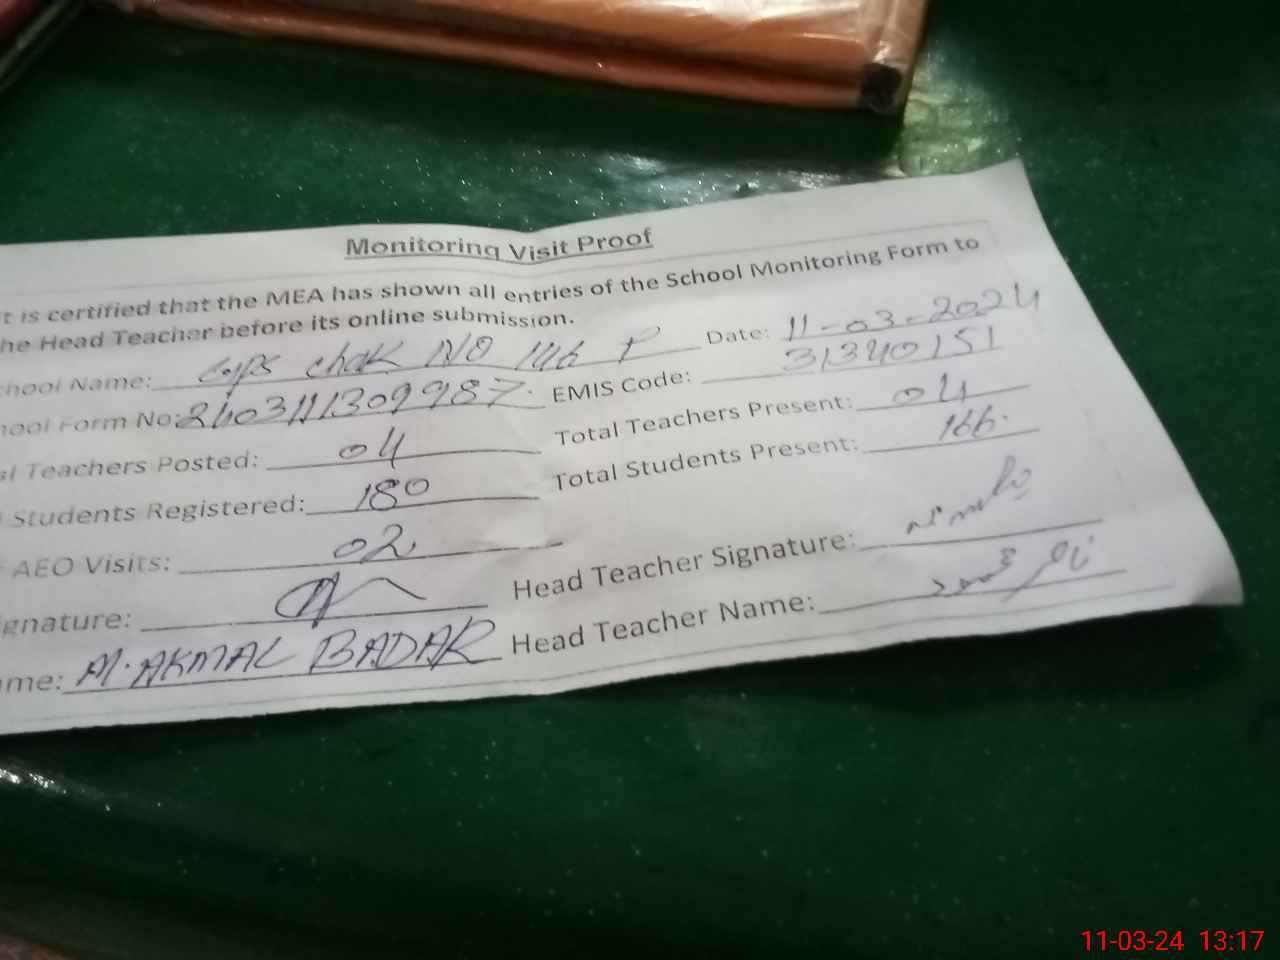 Monitoring Visit Proof
t is certified that the MEA has shown all entries of the School Monitoring Form to
he Head Teacher before its online submission.
chool Name: GPS chak NO 146 P Date: 11-03-2024
hool Form No: 2403111309987. EMIS Code: 31340151
al Teachers Posted: 04 Total Teachers Present: 04
Students Registered: 180 Total Students Present: 166.
AEO Visits: 02
ignature: Head Teacher Signature:
ame: M. AKMAL BADAR Head Teacher Name:
11-03-24 13:17